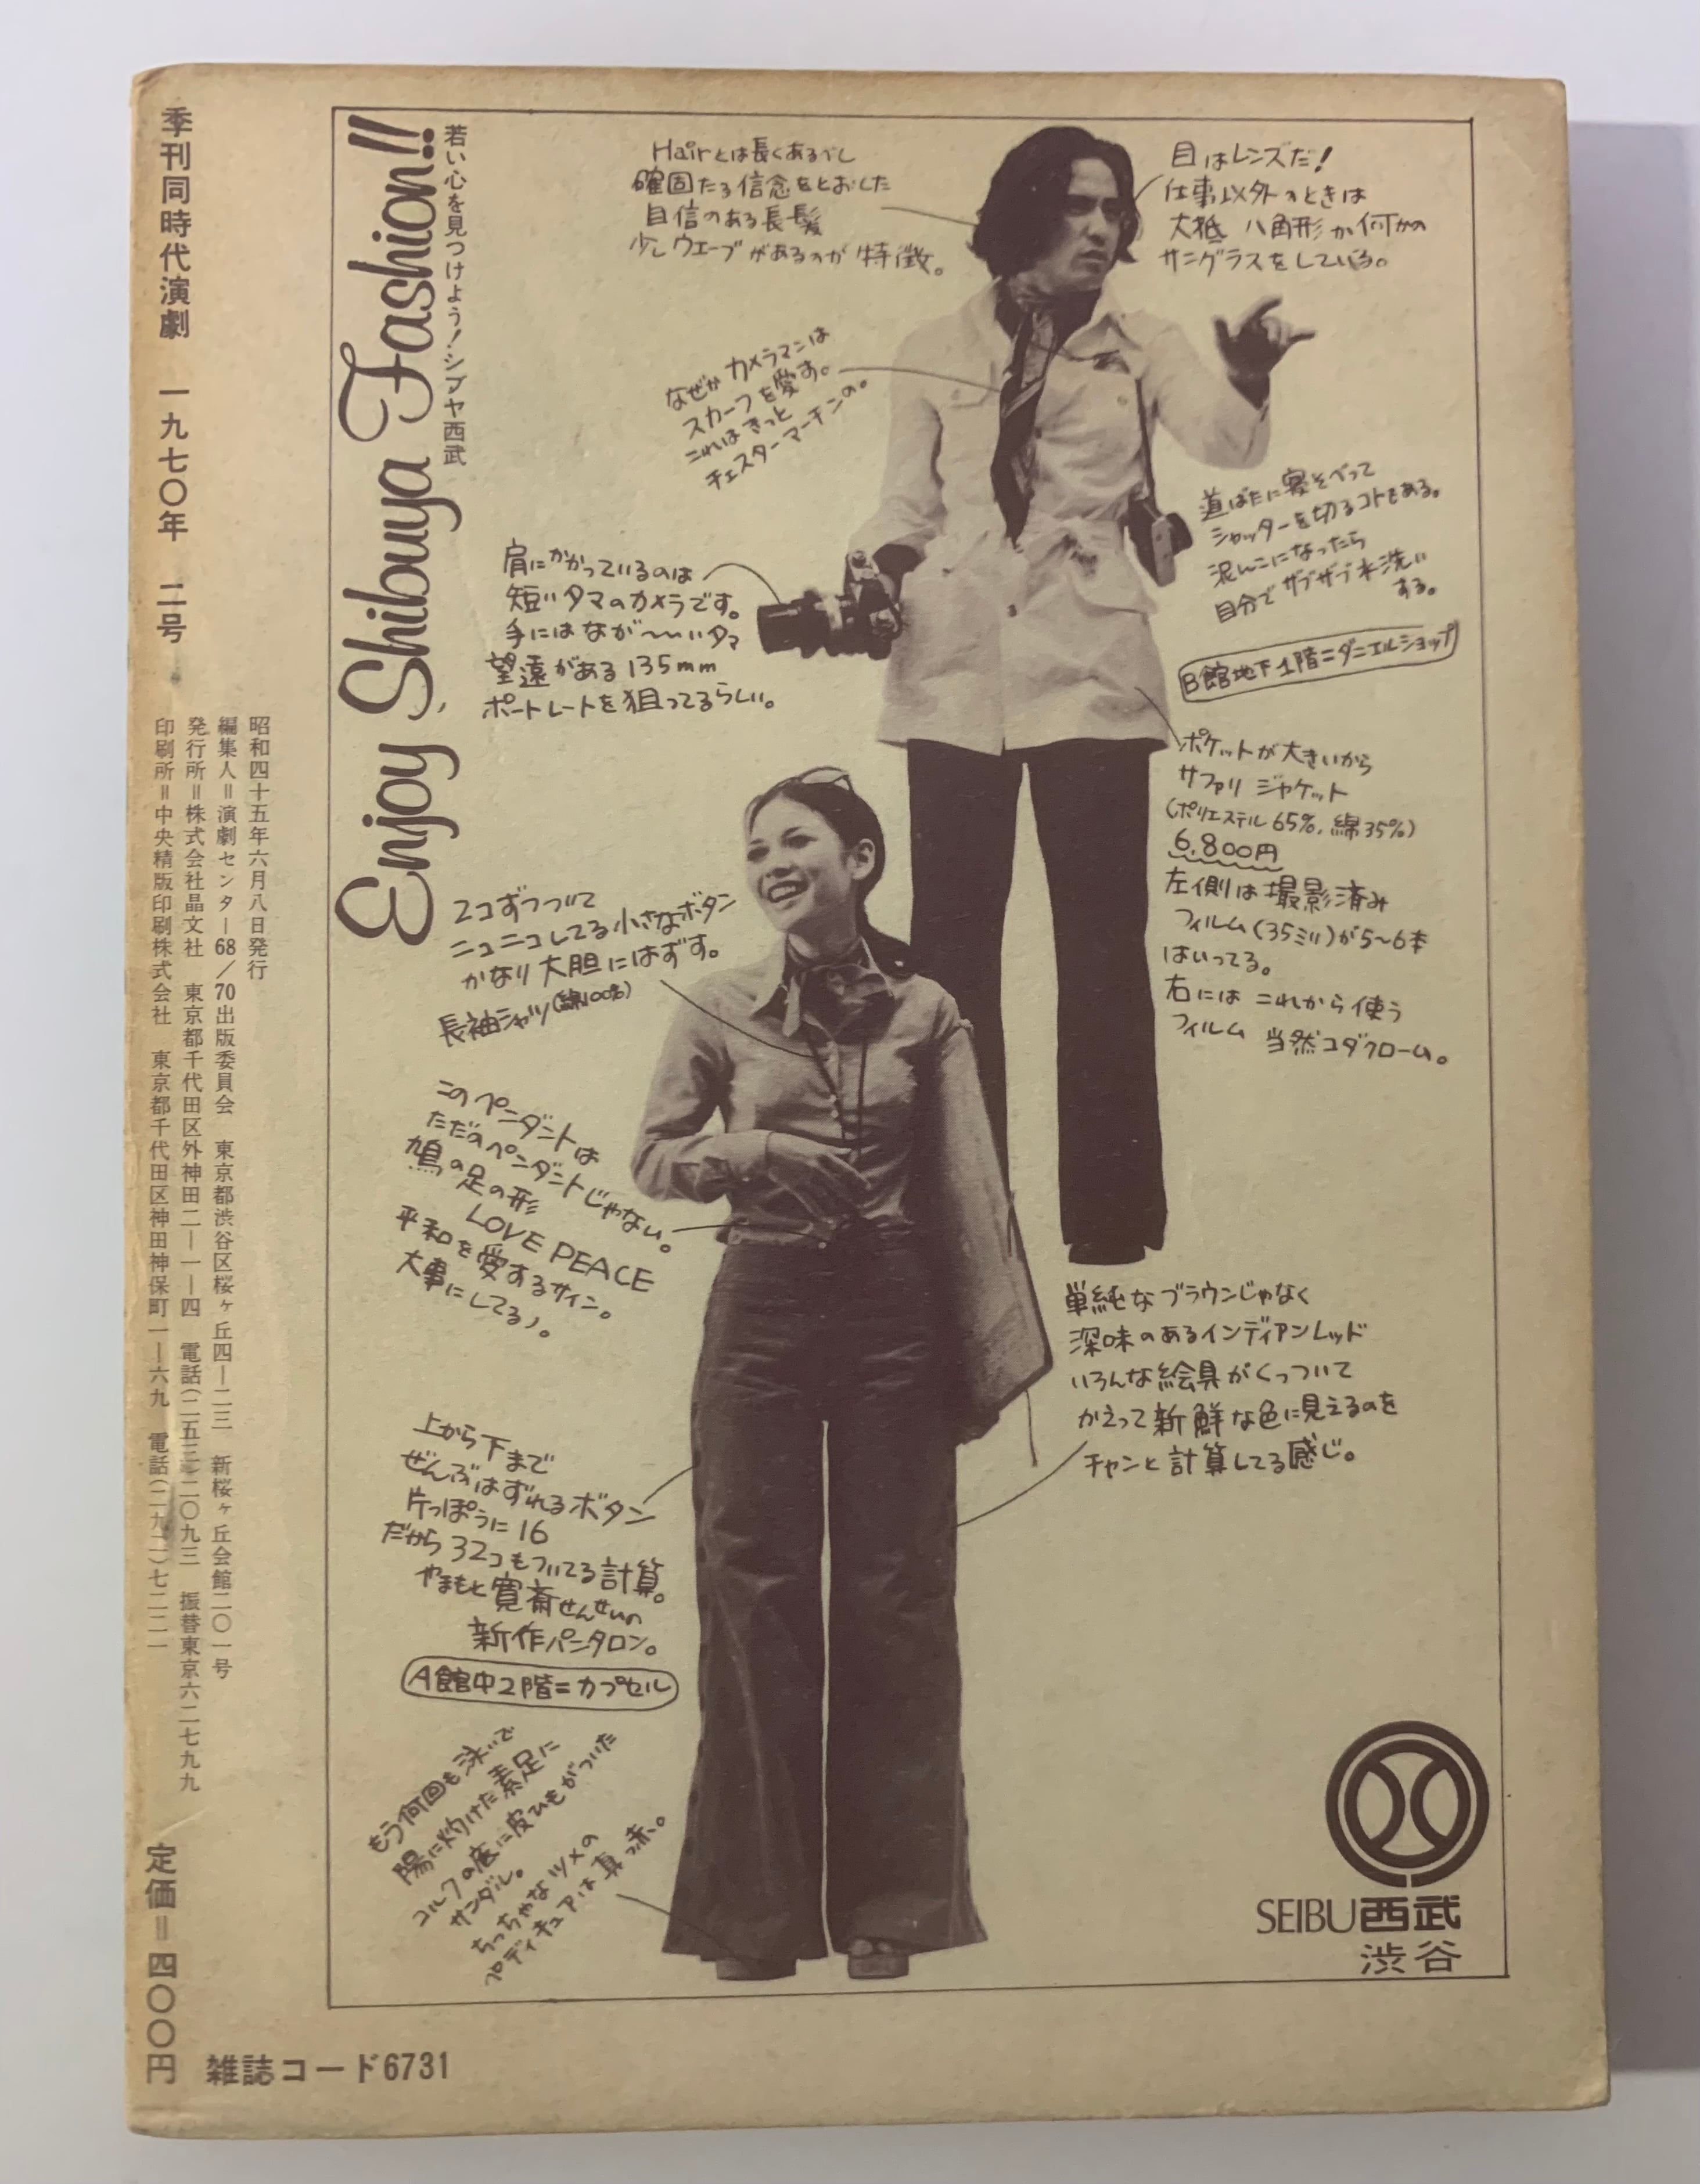 季刊同時代演劇 一九七〇年 二号
昭和四十五年六月八日発行
編集人＝演劇センター68／70出版委員会 東京都渋谷区桜ヶ丘四―二三 新桜ヶ丘会館二〇一号
発行所＝株式会社晶文社 東京都千代田区外神田二―一―四 電話(二五五)二〇九三 振替東京六二七九九
印刷所＝中央精版印刷株式会社 東京都千代田区神田神保町一―六九 電話(二九二)七二二一
定価＝四〇〇円
雑誌コード6731
若い心を見つけよう!シブヤ西武
Enjoy Shibuya Fashion!!
Hairとは長くあるべし
確固たる信念をとおした
自信のある長髪
少しウエーブがあるのが特徴。
目はレンズだ!
仕事以外のときは
大抵 八角形か何かの
サングラスをしている。
なぜかカメラマンは
スカーフを愛す。
これはきっと
チェスターマーチンの。
道ばたに寝そべって
シャッターを切るコトもある。
泥んこになったら
自分でザブザブ水洗い
する。
B館地下1階=ダニエルショップ
肩にかかっているのは
短いタマのカメラです。
手にはなが〜〜いタマ
望遠がある135mm
ポートレートを狙ってるらしい。
ポケットが大きいから
サファリ ジャケット
(ポリエステル65%,綿35%)
6.800円
左側は撮影済み
フィルム(35ミリ)が5~6本
はいってる。
右には これから使う
フィルム 当然コダクローム。
2コずつついて
ニコニコしてる小さなボタン
かなり大胆にはずす。
長袖シャツ(綿100%)
このペンダントは
ただのペンダントじゃない。
鳩の足の形
LOVE PEACE
平和を愛するサイン。
大事にしてるノ。
単純なブラウンじゃなく
深味のあるインディアンレッド
いろんな絵具がくっついて
かえって新鮮な色に見えるのを
チャンと計算してる感じ。
上から下まで
ぜんぶはずれるボタン
片っぽうに16
だから32コもついてる計算。
やまもと寛斎せんせいの
新作パンタロン。
A館中2階=カプセル
もう何回も泳いで
陽に灼けた素足に
コルクの底に皮ひもがついた
サンダル。
ちっちゃなツメの
プディキュアは真っ赤。
SEIBU西武
渋谷